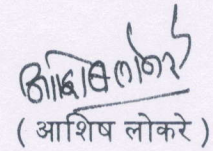 आशिष लोकरे
( आशिष लोकरे )